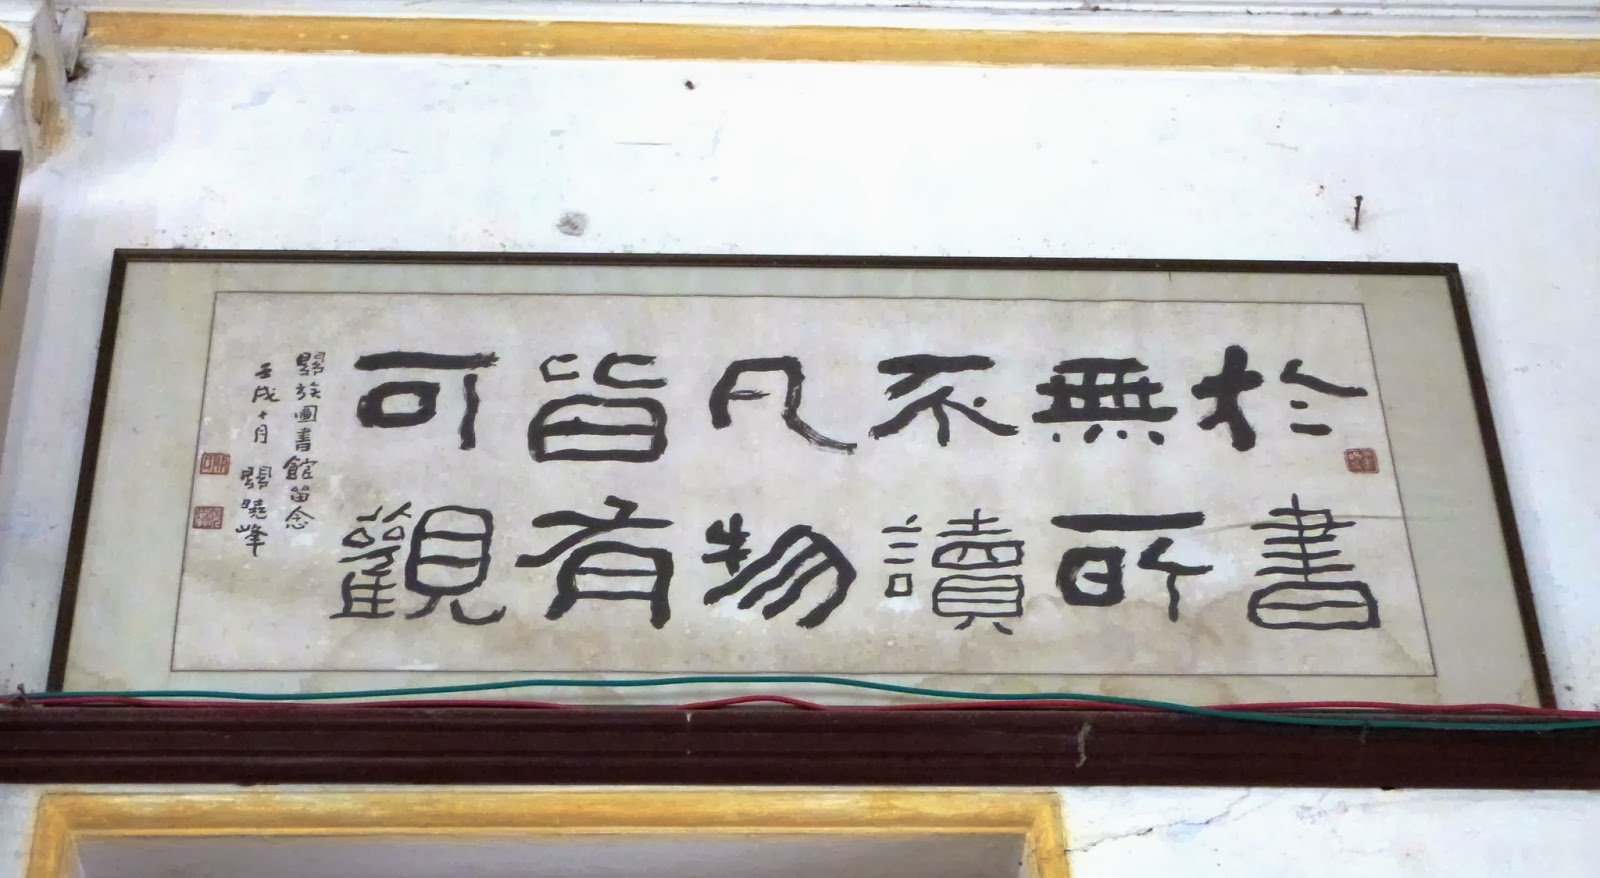 於書
無所
不讀
凡物
皆有
可觀
關族圖書館留念
壬戌十月 關曉峰